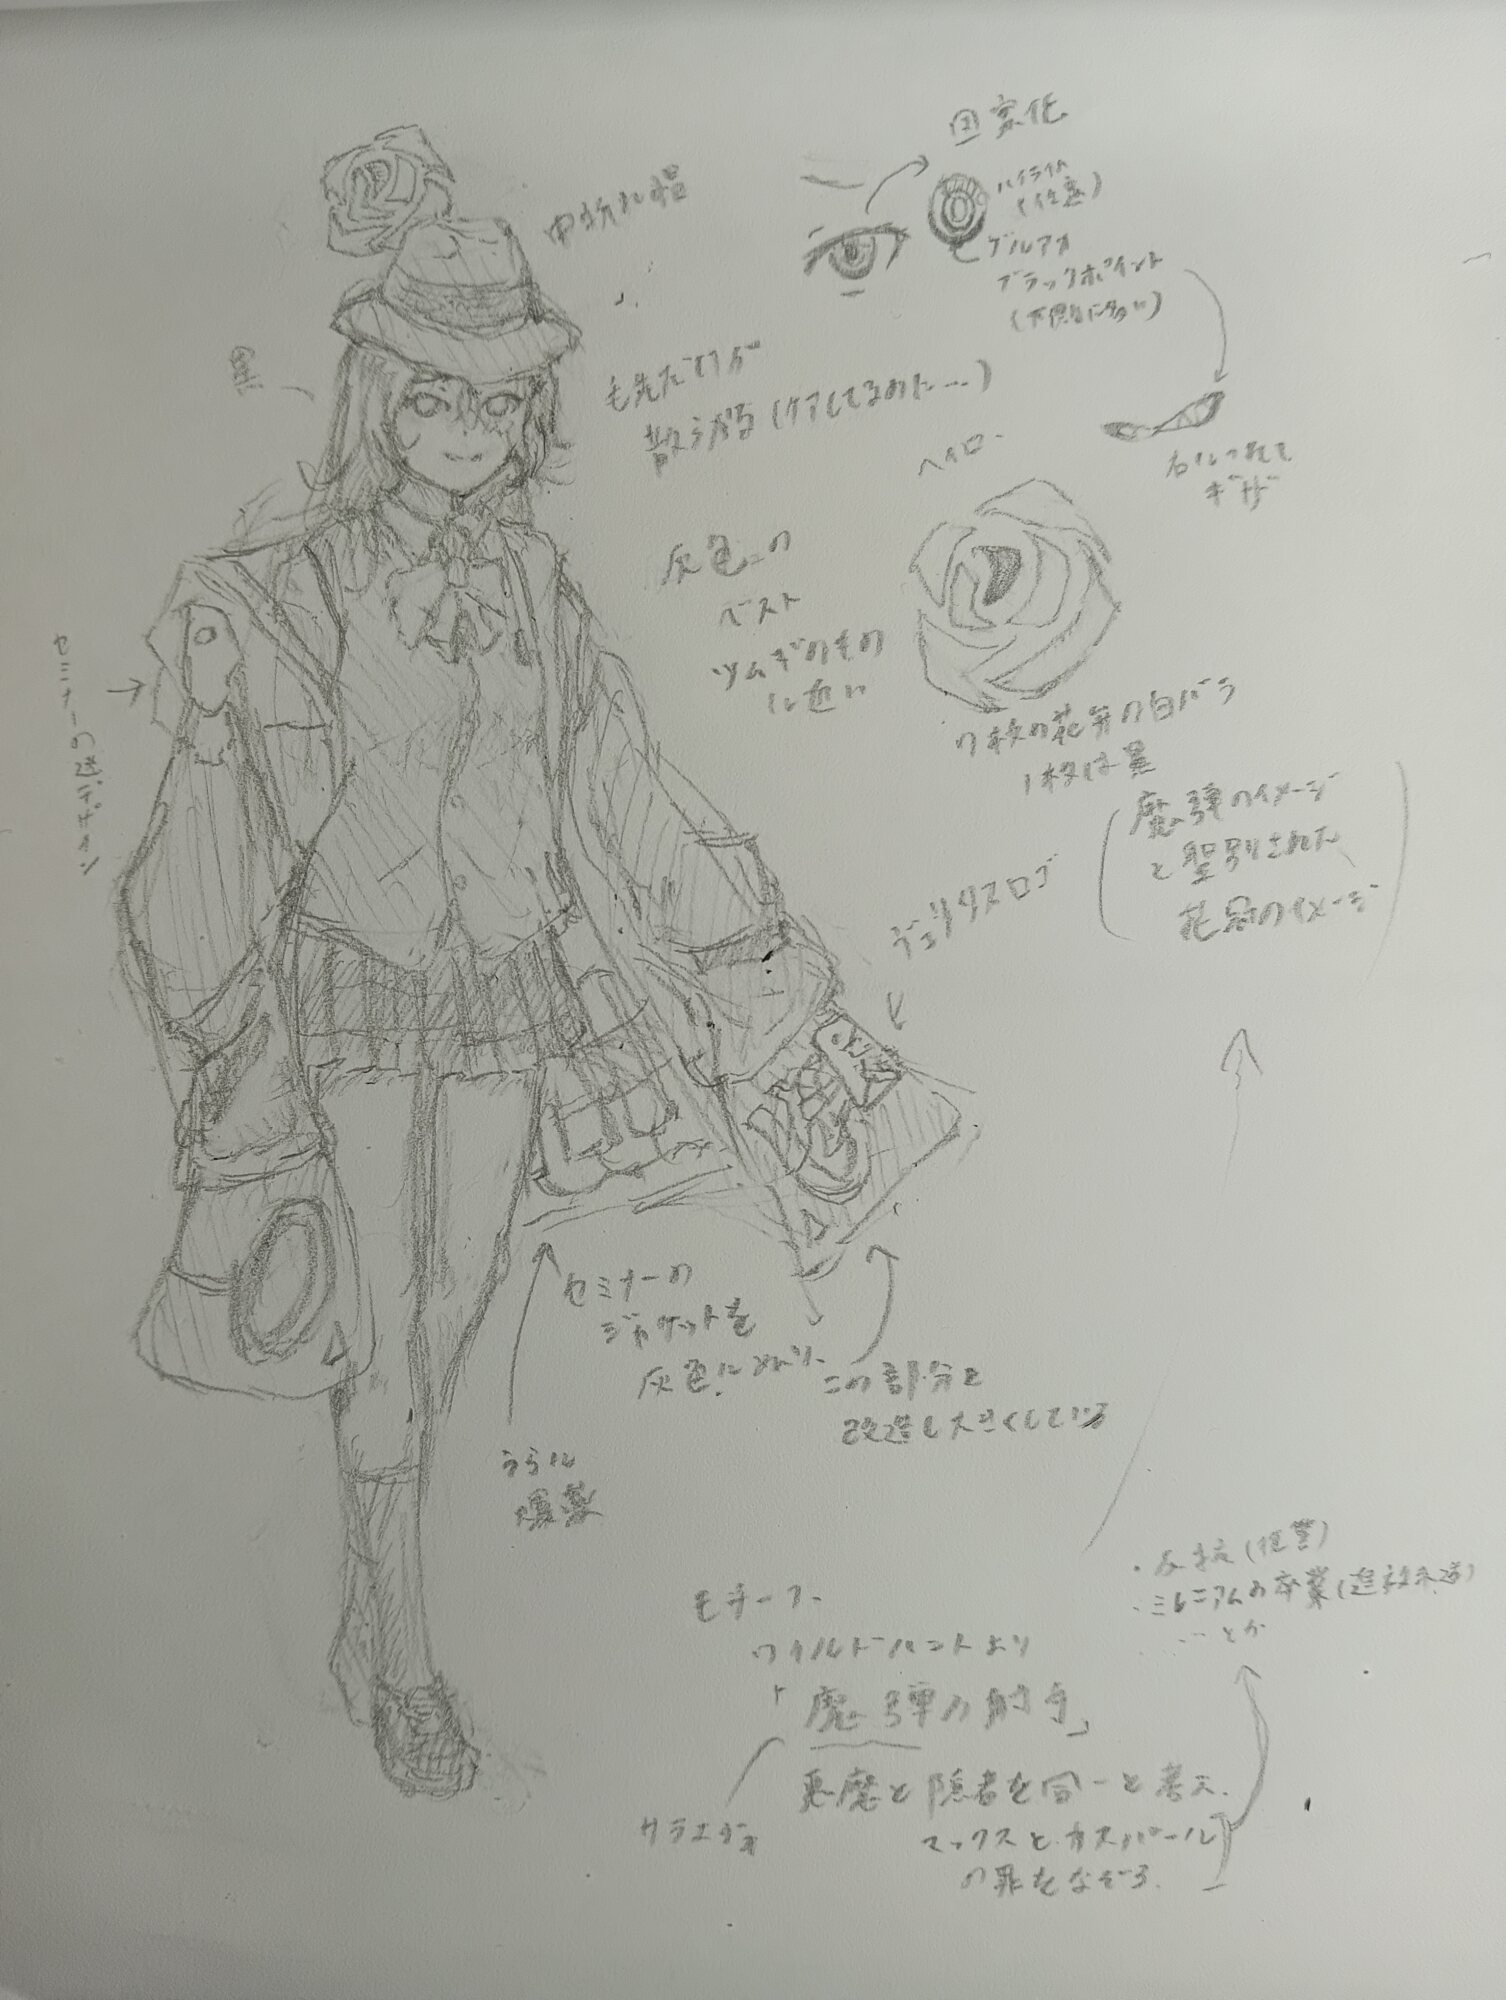 中折れ帽
黒
毛先だけが
散らがる(ケアしてるのに…)
変化
ハイライト
(任意)
ブラックポイント
(下側に多い)
ギザ
ヘイロー
灰色の
ベスト
ツムギのもの
に近い
7枚の花弁の白バラ
1枚は黒
(魔弾のイメージ
と聖別された
花冠のイメージ)
ヴェリタスロゴ
セミナーの逆デザイン
セミナーの
ジャケットを
灰色にぬり、
この部分を
改造し大きくしている
うらに
爆薬
モチーフ
ワイルドハントより
「魔弾の射手」
悪魔と隠者を同一と考え、
マックスとカスパール
の罪をなぞる。
サラエヴォ
ミレニアムの卒業
…とか